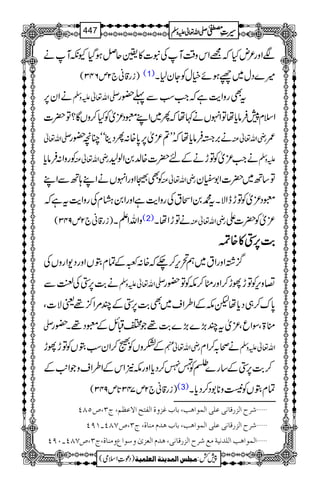 سیرتِ مصطفیٰ صلی اللہ تعالیٰ علیہ وسلم 447
اگلے اور عرض کیا کہ مجھے اسی وقت آپ کی نبوت کا یقین حاصل ہو گیا کیونکہ آپ نے
میرے دل میں چھپے ہوئے خیال کو جان لیا۔ (1) (زرقانی ج۲ ص۳۴۶)
یہ بھی روایت ہے کہ جب سب سے پہلے حضور صلی اللہ تعالیٰ علیہ وسلم نے ان پر
اسلام پیش فرمایا تو انہوں نے کہا تھا کہ پھر میں اپنے معبود عزیٰ کو کیا کروں گا؟ تو حضرت
عمر رضی اللہ تعالیٰ عنہ نے برجستہ فرمایا تھا کہ ”تم عزیٰ پر پاخانہ پھر دینا“ چنانچہ حضور صلی اللہ تعالیٰ
علیہ وسلم نے جب عزیٰ کو توڑنے کے لئے حضرت خالد بن الولید رضی اللہ تعالیٰ عنہ کو روانہ فرمایا
تو ساتھ میں حضرت ابوسفیان رضی اللہ تعالیٰ عنہ کو بھی بھیجا اور انہوں نے اپنے ہاتھ سے اپنے
معبود عزیٰ کو توڑ ڈالا۔ یہ محمد بن اسحاق کی روایت ہے اور ابن ہشام کی روایت یہ ہے کہ
عزیٰ کو حضرت علی رضی اللہ تعالیٰ عنہ نے توڑا تھا۔ (2) واللہ اعلم۔ (زرقانی ج۲ ص۳۴۹)
بت پرستی کا خاتمہ
گزشتہ اوراق میں ہم تحریر کر چکے کہ خانہ کعبہ کے تمام بتوں اور دیواروں کی
تصاویر کو توڑ پھوڑ کر اور مٹا کر مکہ کو تو حضور صلی اللہ تعالیٰ علیہ وسلم نے بت پرستی کی لعنت سے
پاک کر ہی دیا تھا لیکن مکہ کے اطراف میں بھی بت پرستی کے چند مراکز تھے یعنی لات،
مناۃ، سواع، عزیٰ یہ چند بڑے بڑے بت تھے جو مختلف قبائل کے معبود تھے۔ حضور صلی
اللہ تعالیٰ علیہ وسلم نے صحابہ کرام رضی اللہ تعالیٰ عنہم کے لشکروں کو بھیج کر ان سب بتوں کو توڑ پھوڑ
کر بت پرستی کے سارے طلسم کو تہس نہس کر دیا اور مکہ نیز اس کے اطراف و جوانب کے
تمام بتوں کو نیست و نابود کر دیا۔ (3) (زرقانی ج۲ ص۳۴۷ تا ص۳۴۹)
شرح الزرقانی علی المواهب، باب غزوة الفتح الاعظم، ج۳، ص۴۸۵
شرح الزرقانی علی المواهب، باب هدم مناة، ج۳، ص۴۸۷۔۴۹۱
المواهب اللدنية مع شرح الزرقانی، هدم العزی و سواع ومناة، ج۳، ص۴۸۷۔۴۹۰
پیش کش: مجلس المدينة العلمية (دعوتِ اسلامی)